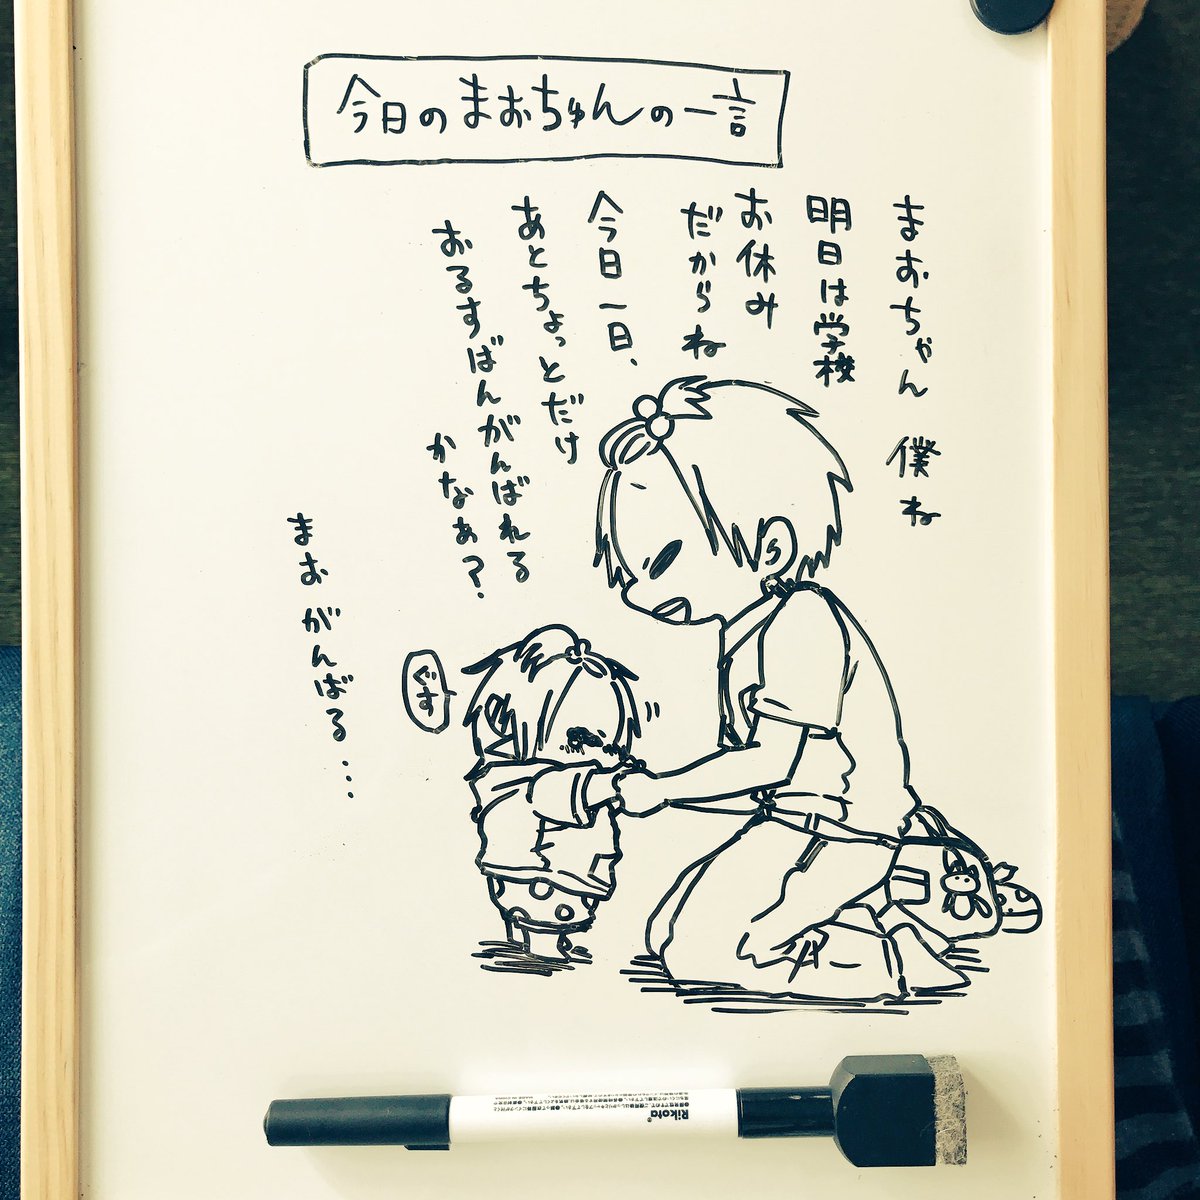 今日のまおちゅんの一言
まおちゃん 僕ね
明日は学校
お休み
だからね
今日一日、
あとちょっとだけ
おるすばんがんばれる
かなぁ?
ぐす
まお がんばる...
Rikota